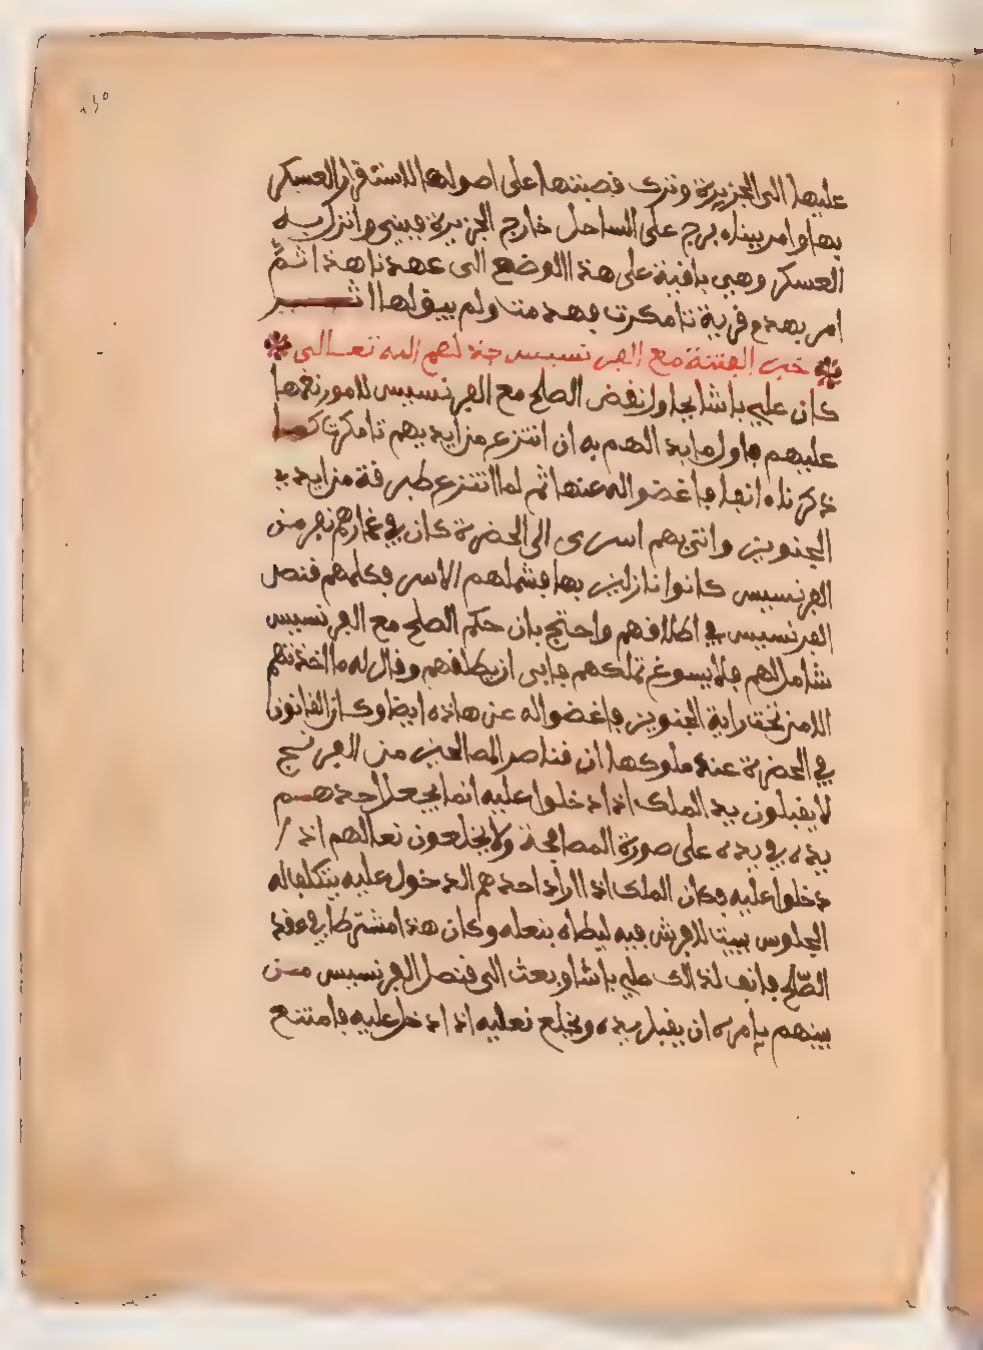 عليها الى الجزيرة وترك قصبتها على اصولها لاستقرار العسكر
بها وامر ببناه برج على الساحل خارج الجزيرة فبني وانزل به
العسكر وهي باقية على هذا الوضع الى عهدنا هذا ثم
امر بهدم قرية تامكرت فهدمت ولم يبق لها اثــر
خبر الفتنة مع الفرنسيس خذلهم الله تعالى
كان علي باشا نقض الصلح مع الفرنسيس لامور نقمها
عليهم فاول ما بداهم به ان انتزع من ايديهم تامكرت كما
ذكرناه انفا فاغضوا له عنها ثم لما انتزع طبرقة من ايدي
الجنويز وانتهبهم اسرى الى الحضرة كان في غمارهم نفر من
الفرنسيس كانوا نازلين بها فشملهم الاسر فكلمهم قنصل
الفرنسيس في اطلاقهم واحتج بان حكم الصلح مع الفرنسيس
شامل لهم فلا يسوغ تملكهم فابى ان يطلقهم وقال له ما اخذتهم
الا من تحت راية الجنويز فاغضوا له عن هاذه ايضا وكان القانون
في الحضرة عند ملوكها ان قناصر المصالحين من الفرنج
لا يقبلون يد الملك اذا دخلوا عليه انما يجعل احدهــم
يده في يده على صورة المصافحة ولا يخلعون نعالهم اذ
دخلوا عليه فكان الملك اذا اراد احدهم الدخول عليه يتكلف له
الجلوس ببيت لا فرش فيه ليطاه بنعله وكان هذا مشترطا في عقد
الصلح فانف لذالك علي باشا وبعث الى قنصل الفرنسيس مــن
بينهم يامره ان يقبل يده ويخلع نعليه اذا دخل عليه فامتنع